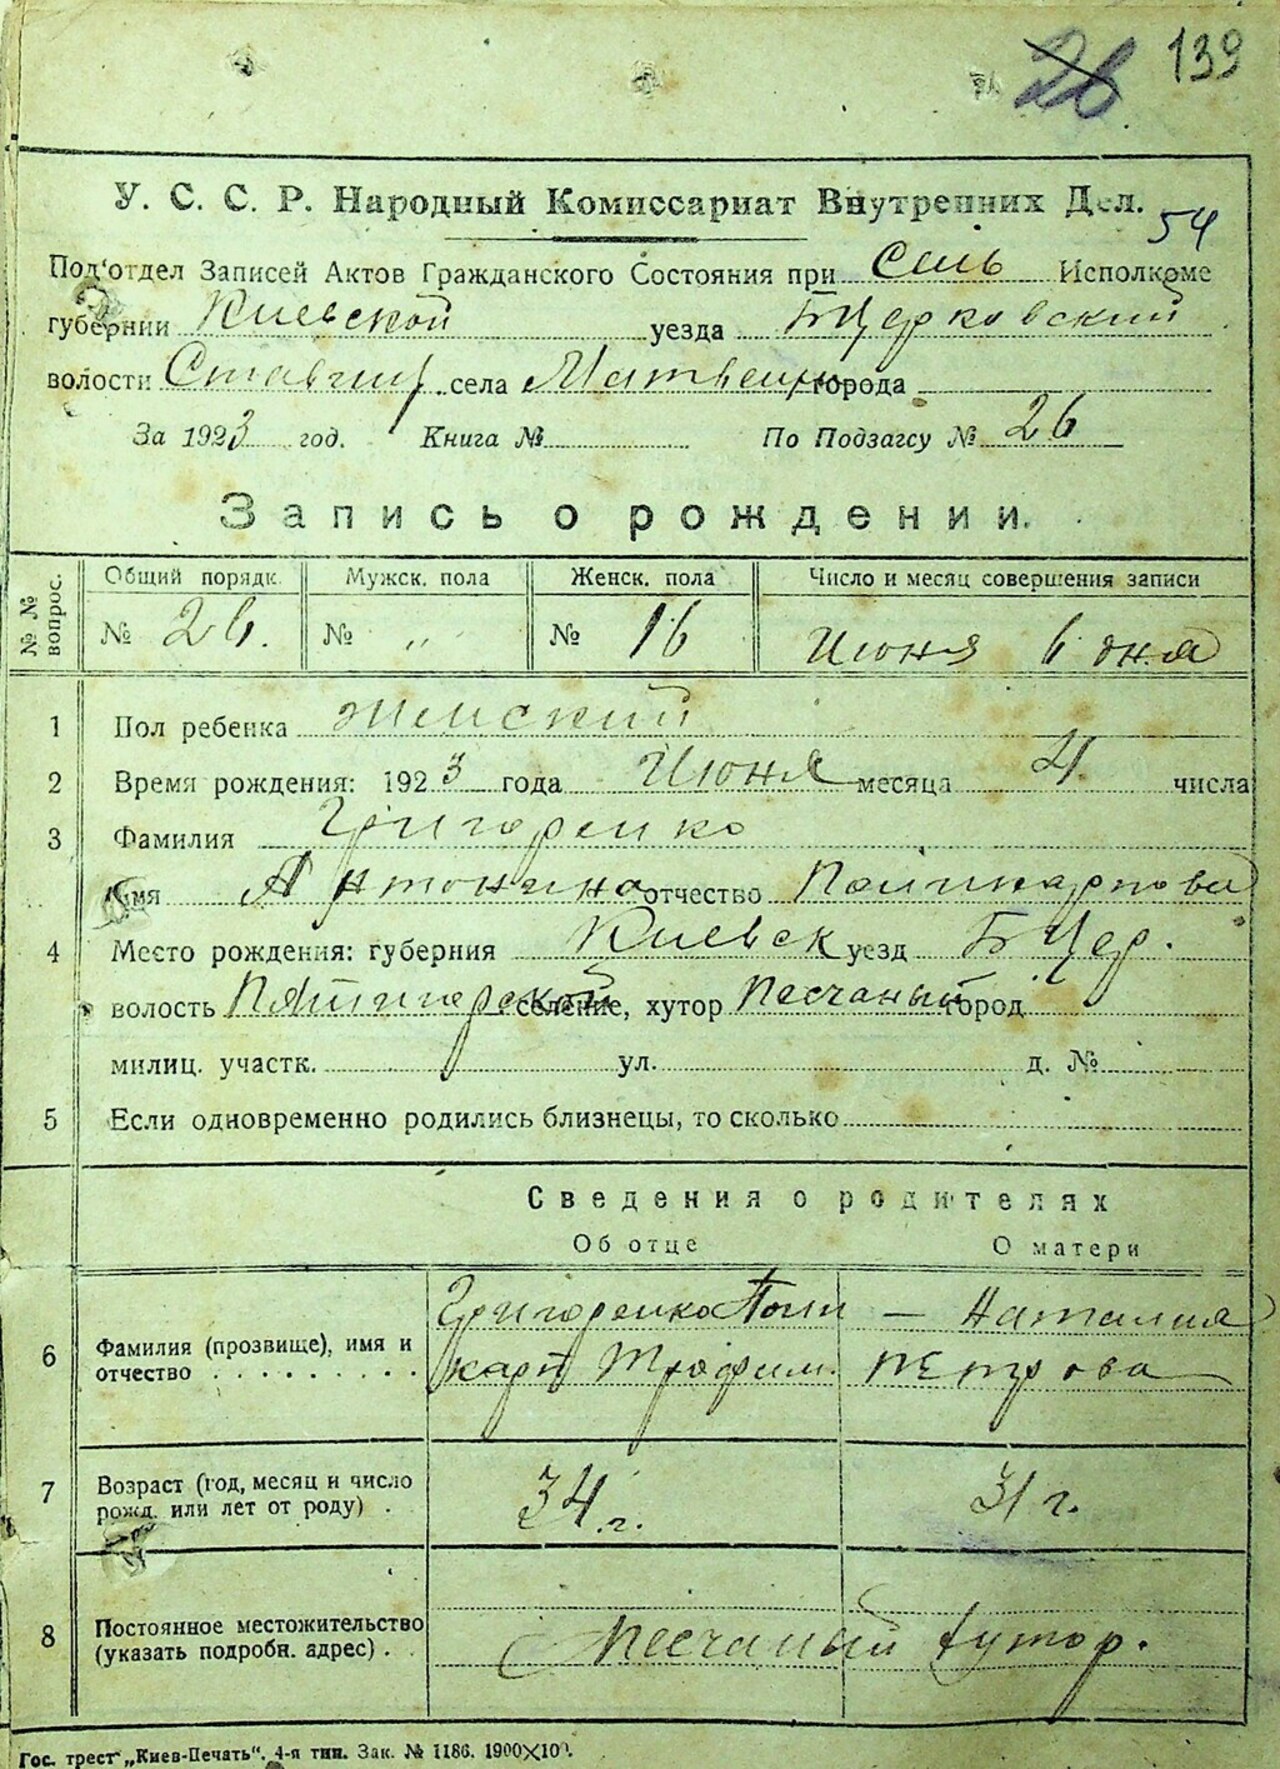 26 139
У. С. С. Р. Народный Комиссариат Внутренних Дел.
54
Под'отдел Записей Актов Гражданского Состояния при Сель Исполкоме
губернии Киевской уезда БЦерковский
волости Ставищ. села Матвеих города
За 1923 год. Книга № По Подзагсу № 26
Запись о рождении.
№ № вопрос. Общий порядк. Мужск. пола Женск. пола Число и месяц совершения записи
№ 26. № „ № 16 Июня 6 дня
1 Пол ребенка женский
2 Время рождения: 1923 года Июня месяца 4 числа
3 Фамилия Григоренко
Имя Антонина отчество Поликарпова
4 Место рождения: губерния Киевск уезд БЦер.
волость Пятигорской селение, хутор Песчаный город
милиц. участк. ул. д. №
5 Если одновременно родились близнецы, то сколько
Сведения о родителях
Об отце О матери
Григоренко Поли — Наталия
6 Фамилия (прозвище), имя и
отчество . . . . . . . . . карп Трофим. Петрова
7 Возраст (год, месяц и число
рожд. или лет от роду) . 34 г. 31 г.
8 Постоянное местожительство
(указать подробн. адрес) . . Песчаный хутор.
Гос. трест „Киев-Печать". 4-я тип. Зак. № 1186. 1900×100.